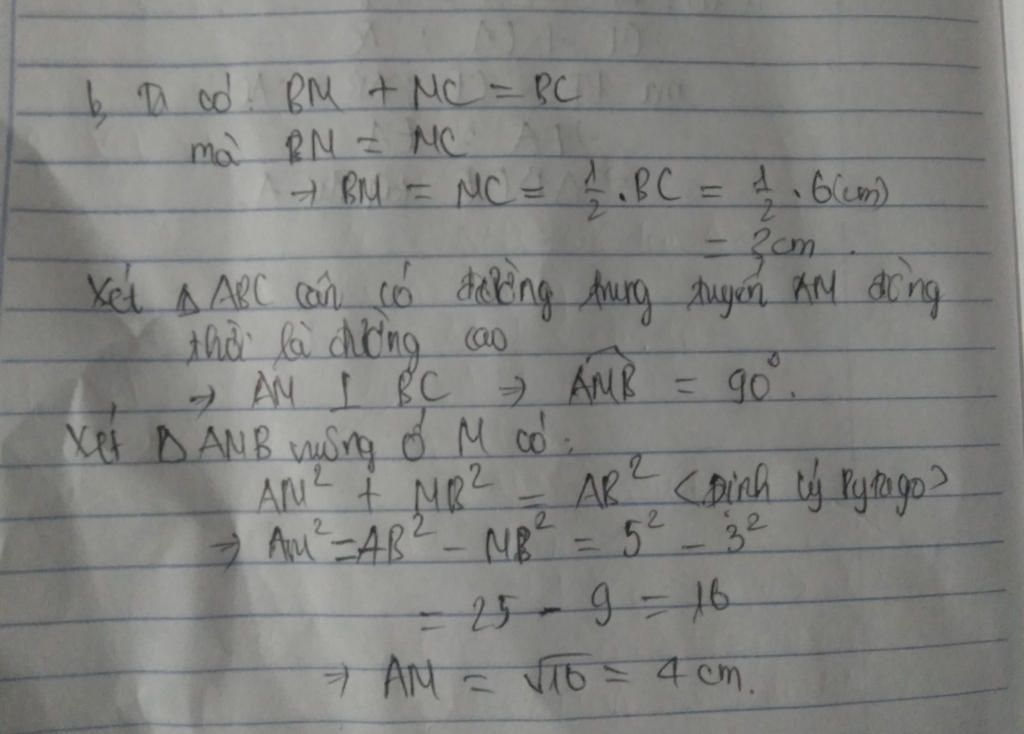 b, Ta có: BM + MC = BC
mà BM = MC
→ BM = MC = 1/2 . BC = 1/2 . 6(cm)
= 3cm.
Xét Δ ABC cân có đường trung tuyến AM đồng
thời là đường cao
→ AM ⊥ BC → AMB̂ = 90°.
Xét Δ AMB vuông ở M có:
AM² + MB² = AB² <Định lý Pytago>
→ AM² = AB² - MB² = 5² - 3²
= 25 - 9 = 16
→ AM = √16 = 4 cm.